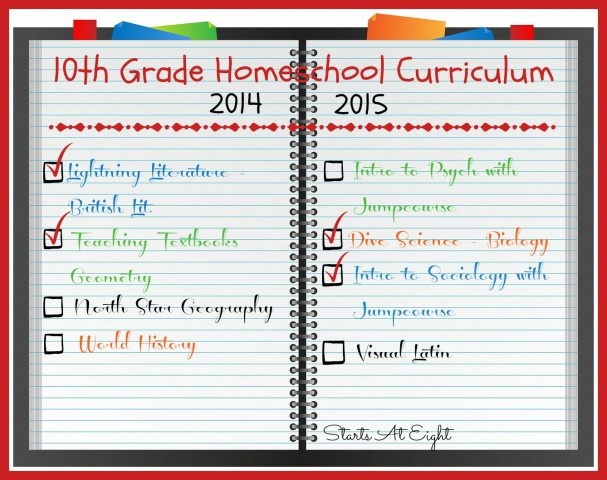 10th Grade Homeschool Curriculum
2014 2015
Lightning Literature -
British Lit.
Teaching Textbooks
Geometry
North Star Geography
World History
Intro to Psych with
Jumpcourse
Dive Science - Biology
Intro to Sociology with
Jumpcourse
Visual Latin
Starts At Eight